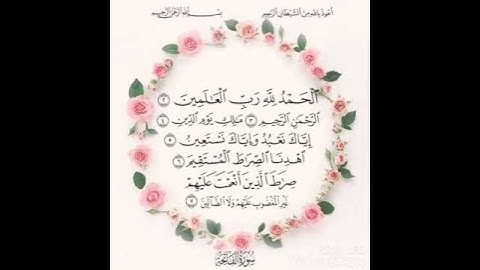 أعوذ بالله من الشيطان الرجيم
بسم الله الرحمن الرحيم
ٱلۡحَمۡدُ لِلَّهِ رَبِّ ٱلۡعَٰلَمِينَ ٢
ٱلرَّحۡمَٰنِ ٱلرَّحِيمِ ٣ مَٰلِكِ يَوۡمِ ٱلدِّينِ ٤
إِيَّاكَ نَعۡبُدُ وَإِيَّاكَ نَسۡتَعِينُ ٥
ٱهۡدِنَا ٱلصِّرَٰطَ ٱلۡمُسۡتَقِيمَ ٦
صِرَٰطَ ٱلَّذِينَ أَنۡعَمۡتَ عَلَيۡهِمۡ
غَيۡرِ ٱلۡمَغۡضُوبِ عَلَيۡهِمۡ وَلَا ٱلضَّآلِّينَ ٧
سورة الفاتحة